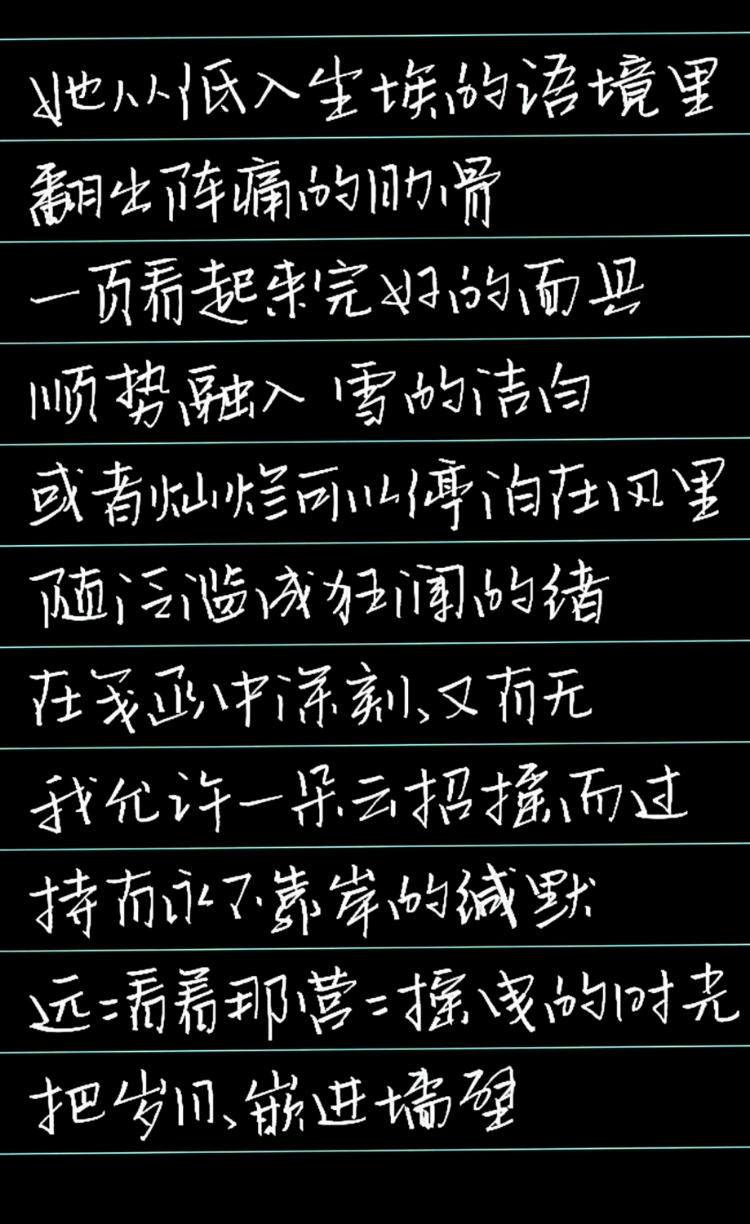 她从低入尘埃的语境里
翻出阵痛的肋骨
一页看起来完好的面具
顺势融入 雪的洁白
或者灿烂可以停泊在风里
随泛滥成狂澜的绪
在笺函中深刻、又有无
我允许一朵云招摇而过
持有永不靠岸的缄默
远=看着那营=摇曳的时光
把岁月、嵌进墙壁